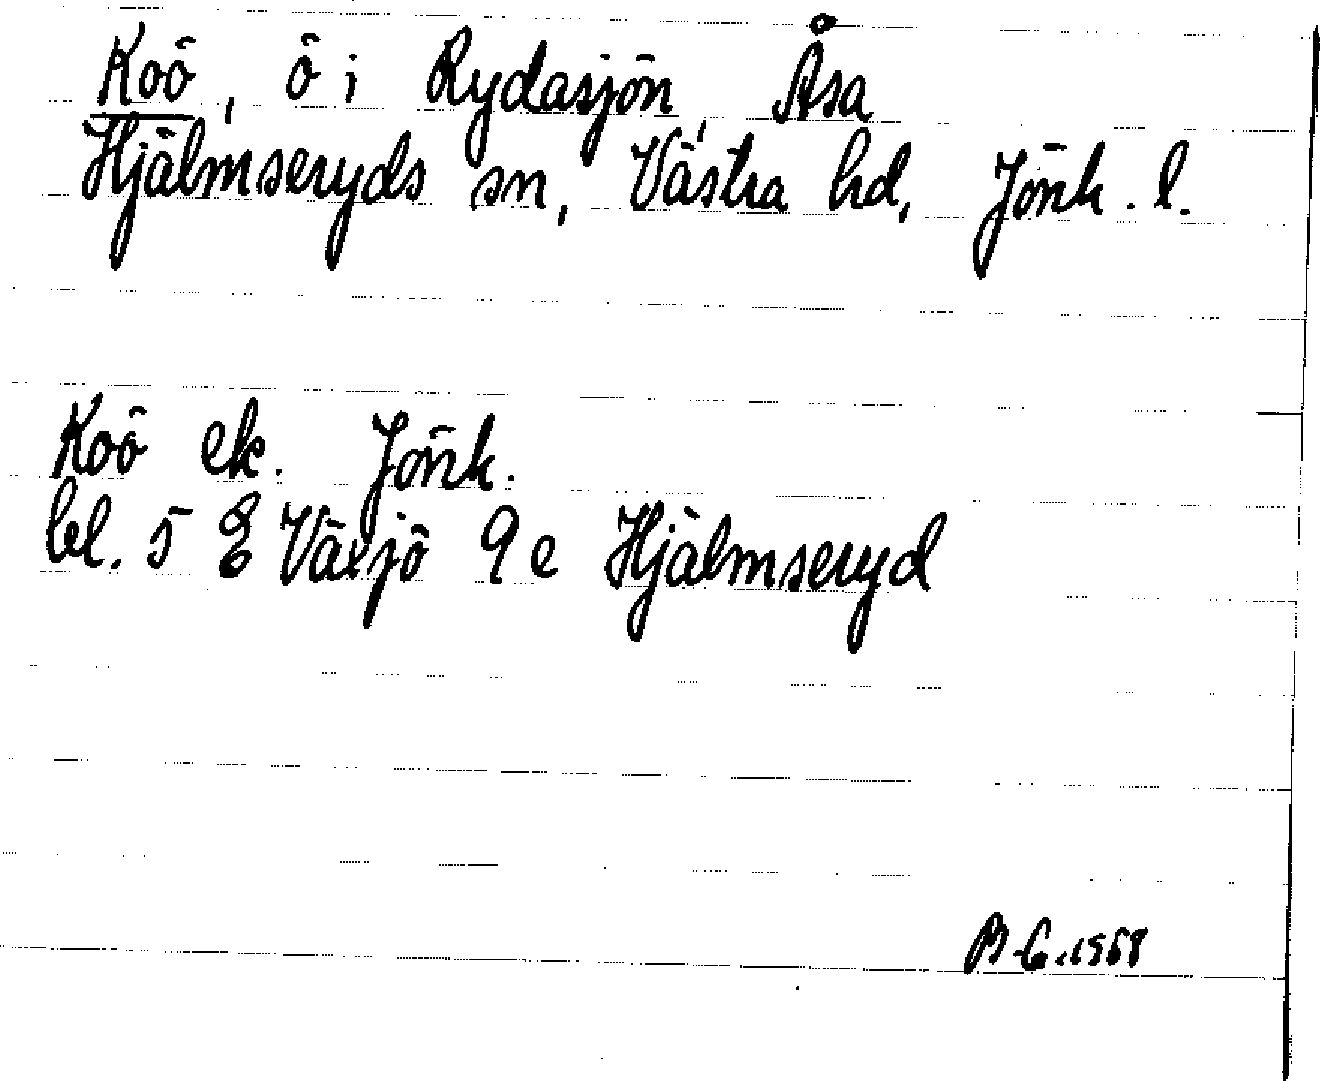 Koö, ö i Rydasjön, Åsa
Hjälmseryds sn, Västra hd, Jönk. l.
Koö ek. Jönk.
bl. 5 E Växjö 9 e Hjälmseryd
B-G. 1958